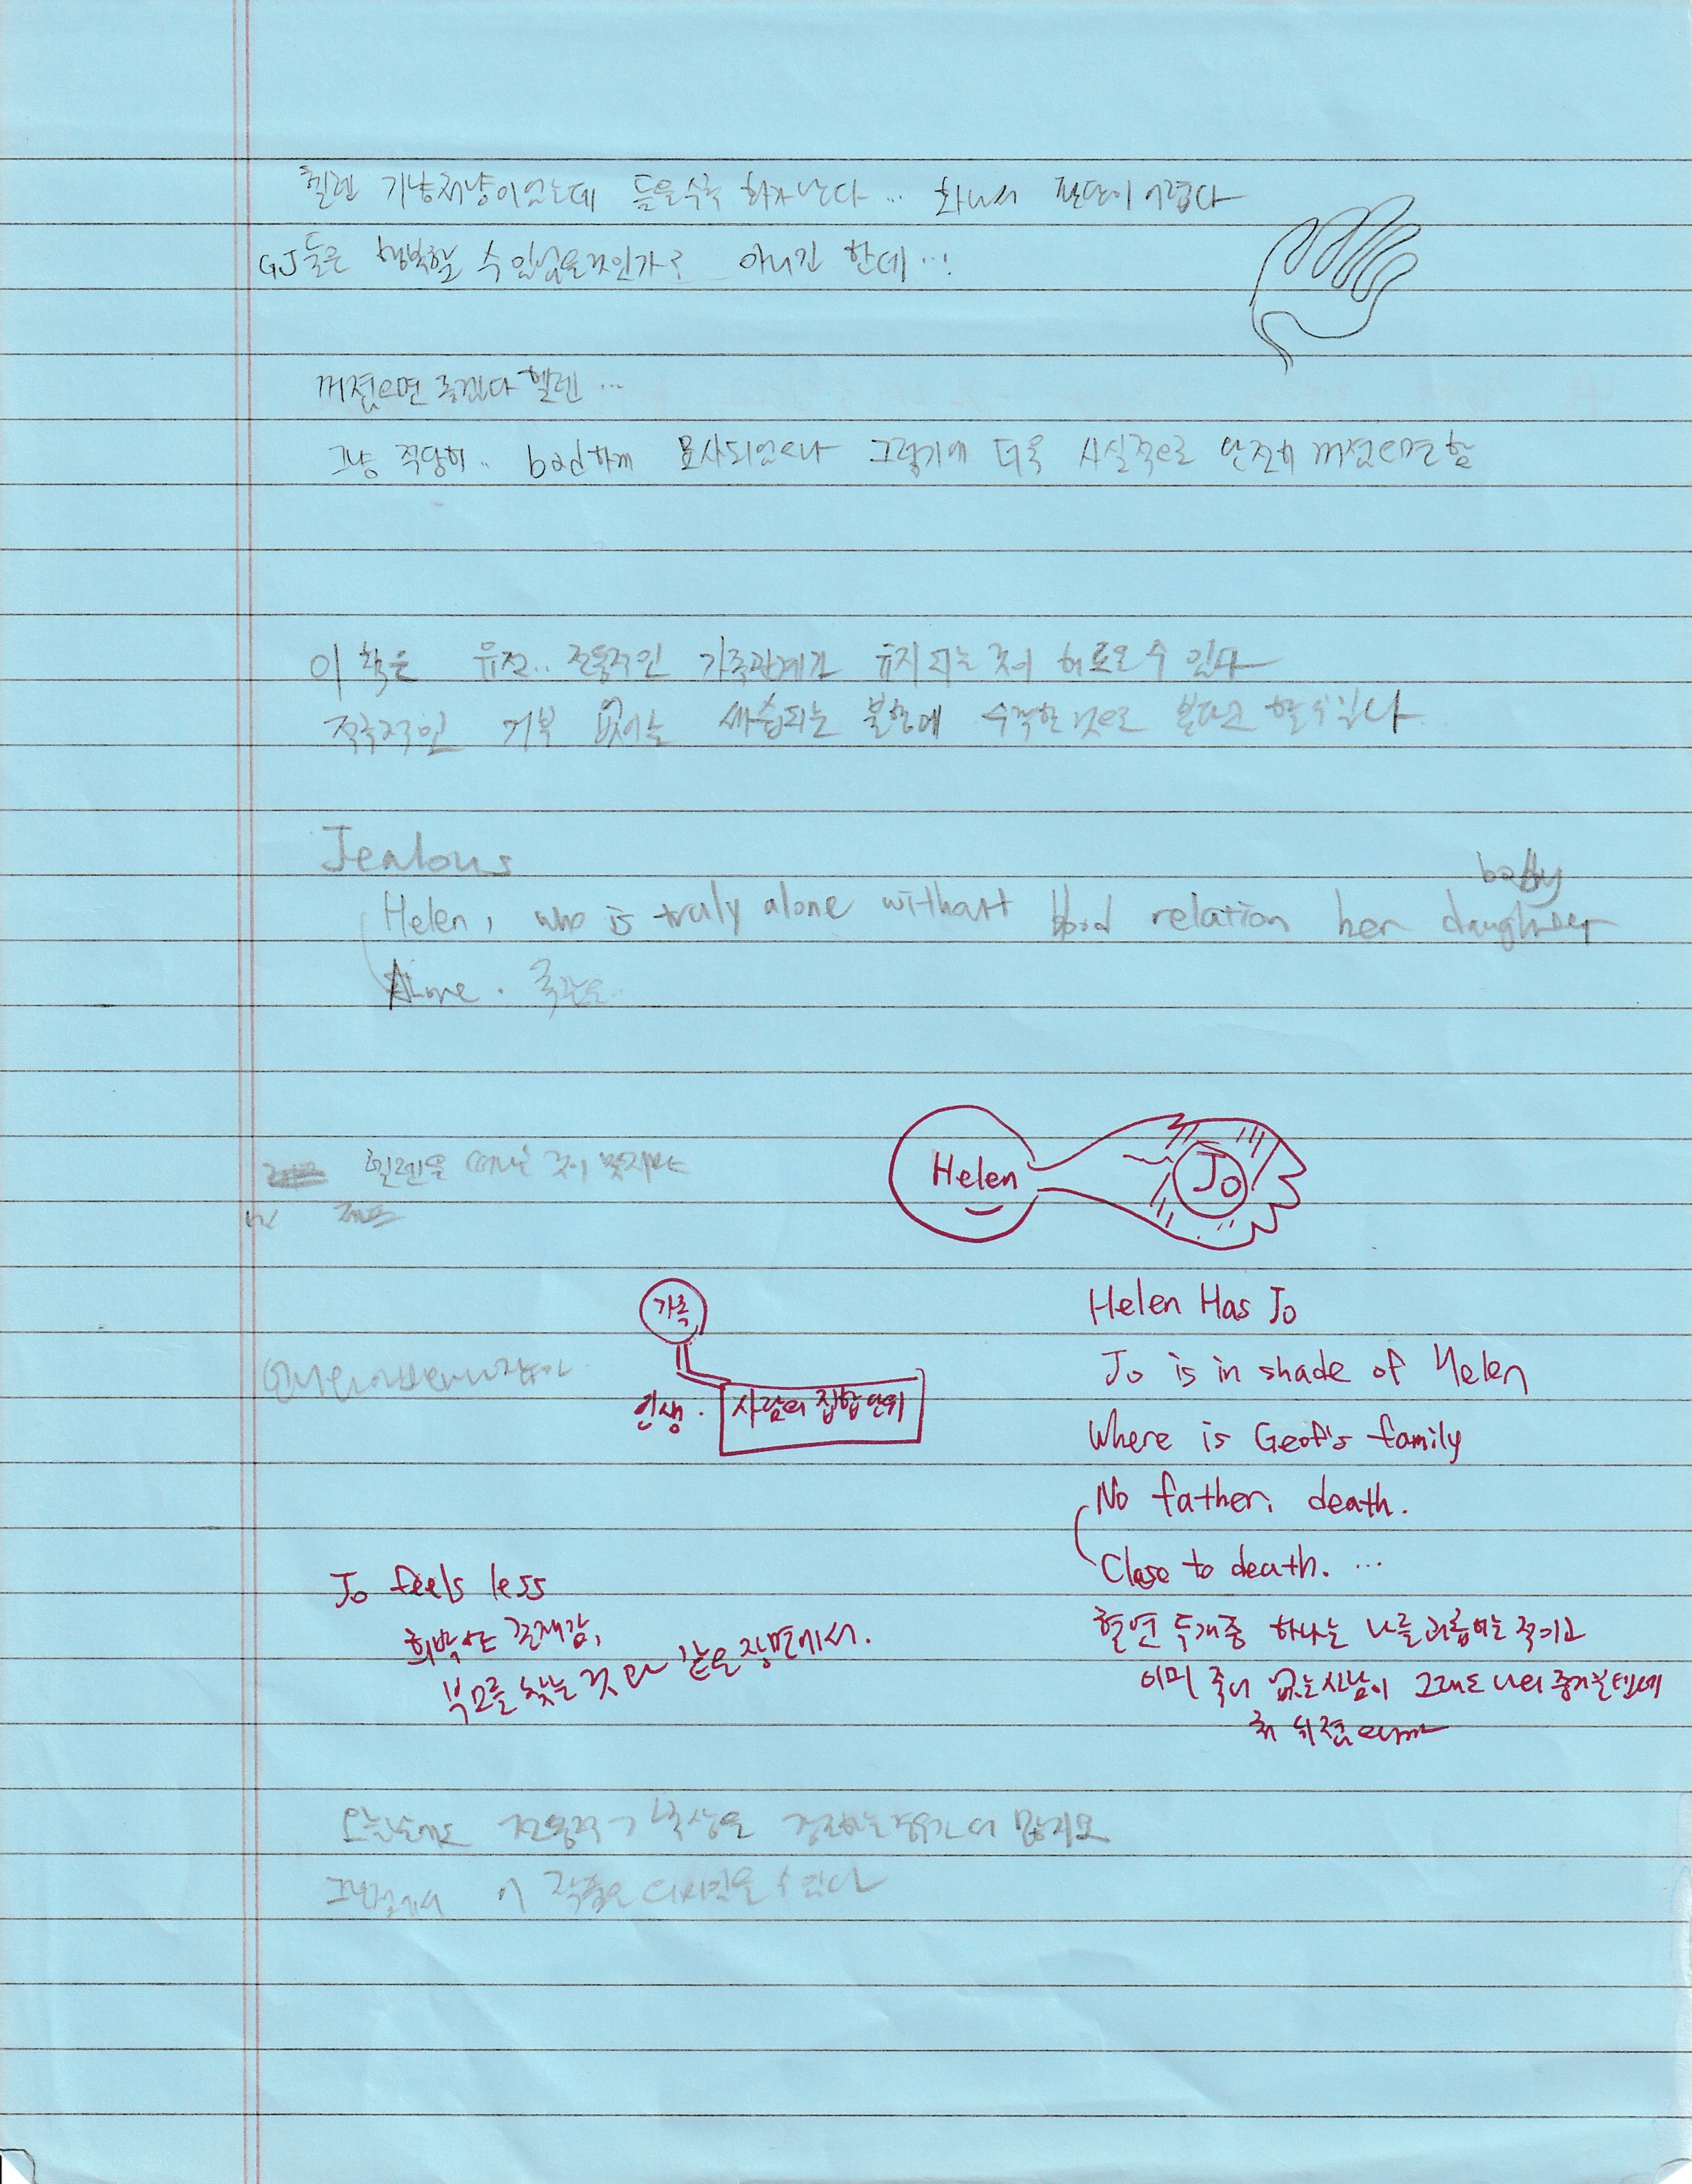 헬렌 기냥저냥이었는데 들을수록 화가난다... 화나서 판단이 어렵다
GJ들은 행복할 수 있었을것인가? 아니긴 한데...!
꺼졌으면 좋겠다 헬렌...
그냥 적당히.. bad하게 묘사되었으나 그렇기에 더욱 사실적으로 완전히 꺼졌으면함
이 책은 유전.. 전통적인 가족관계가 유지되는 것이 해로울 수 있다
적극적인 거부 없이는 세습되는 불행에 수락한 것으로 본다고 할수있다
Jealous
baby
Helen, who is truly alone without blood relation her daughter
Alone.
헬렌을 떠난 것이 맞지만
제프
Helen
Jo
가족
인생. 사람의 집합 단위
Helen Has Jo
Jo is in shade of Helen
Where is Geof's family
No father, death.
Close to death. ...
혈연 두개중 하나는 나를 괴롭히는 적이고
이미 죽어 없는사람이 그래도 나의 증거일텐데
Jo feels less
희박한 존재감,
부모를 찾는 것과 같은 장면에서.
오늘날에도 전통적
이 작품은 다시읽을 수 있다